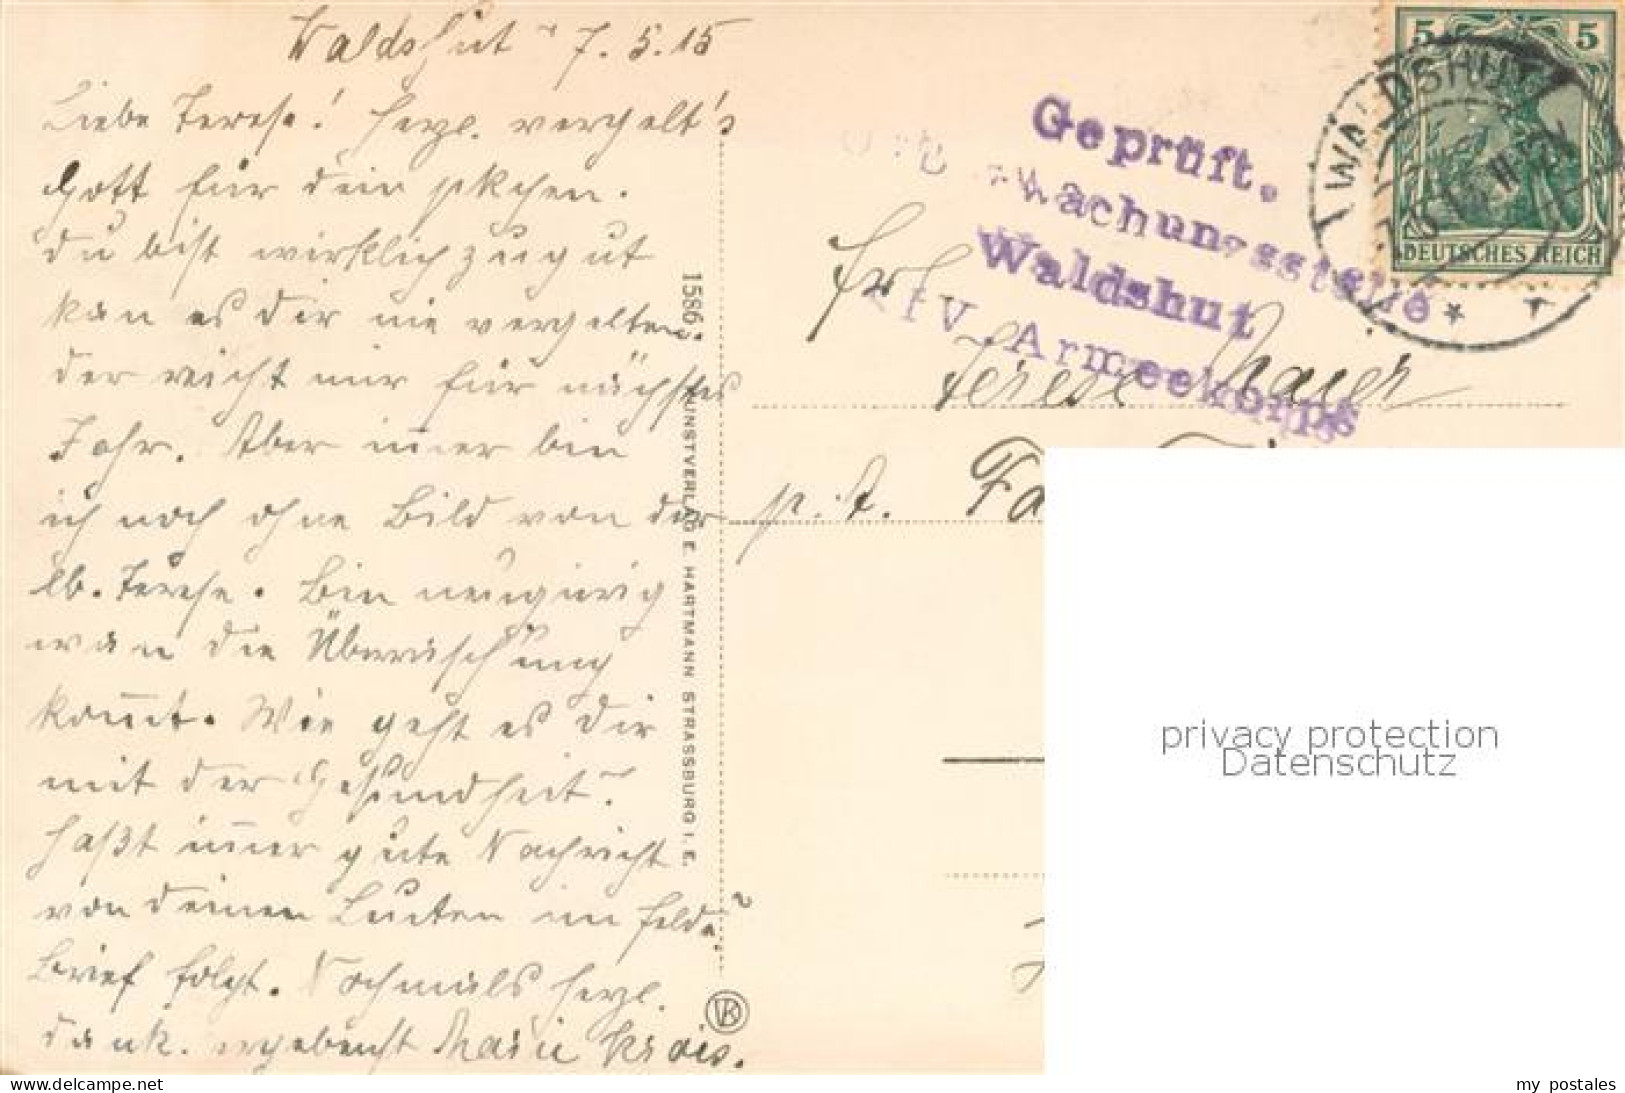 Waldshut 7. 5. 15
Liebe Terese! Herzl. vergelt's
Gott für dein pkchen.
du bist wirklich zu gut
kan es dir nie vergelten
der reicht mir für nächstes
Jahr. Aber im̅er bin
ich noch ohne Bild von der
lb. Terese. Bin neugirig
wan die Überraschung
kom̅t. Wie geht es dir
mit der Gesundheit?
haßt im̅er gute Nachricht
von deinen Leuten im Felde?
Brief folgt. Nochmals herzl.
dank. ergebenst Marie
1586
KUNSTVERLAG E. HARTMANN STRASSBURG I. E.
VK
Geprüft.
Überwachungsstelle
Waldshut
XIV. Armeekorps
5 5
DEUTSCHES REICH
WALDSHUT
Frl.
Terese Maier
p. A. Fa
privacy protection
Datenschutz
www.delcampe.net
my_postales